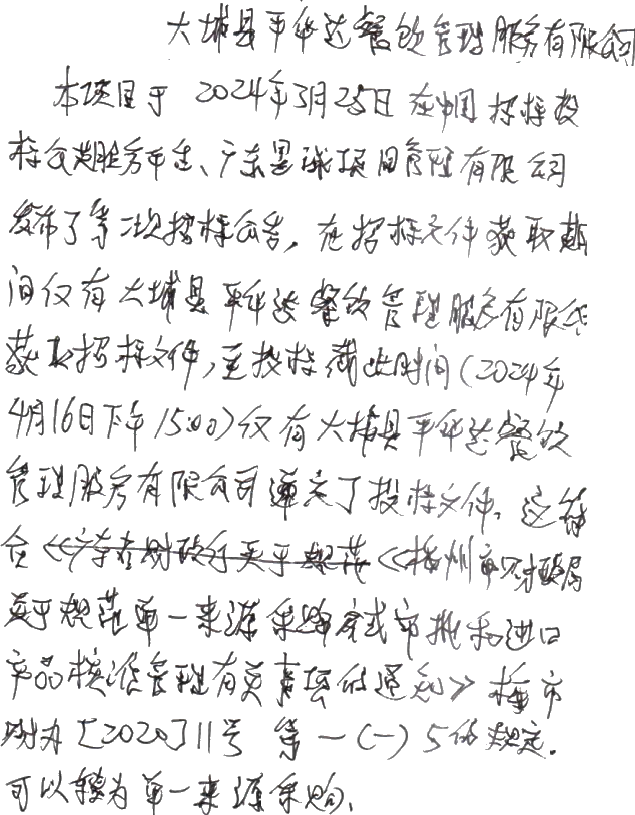 大埔县平华达餐饮管理服务有限公司
本项目于 2024年3月25日在中国招标投
标公共服务平台、广东星球项目管理有限公司
发布了第二次招标公告，在招标文件获取期
间仅有大埔县平华达餐饮管理服务有限公司
获取招标文件，至投标截止时间（2024年
4月16日下午15:00）仅有大埔县平华达餐饮
管理服务有限公司递交了投标文件，这符
合《梅州市财政局
关于规范单一来源采购方式审批和进口
产品核准管理有关事项的通知》梅市
财办[2020]11号 第一（一）5的规定.
可以转为单一来源采购.